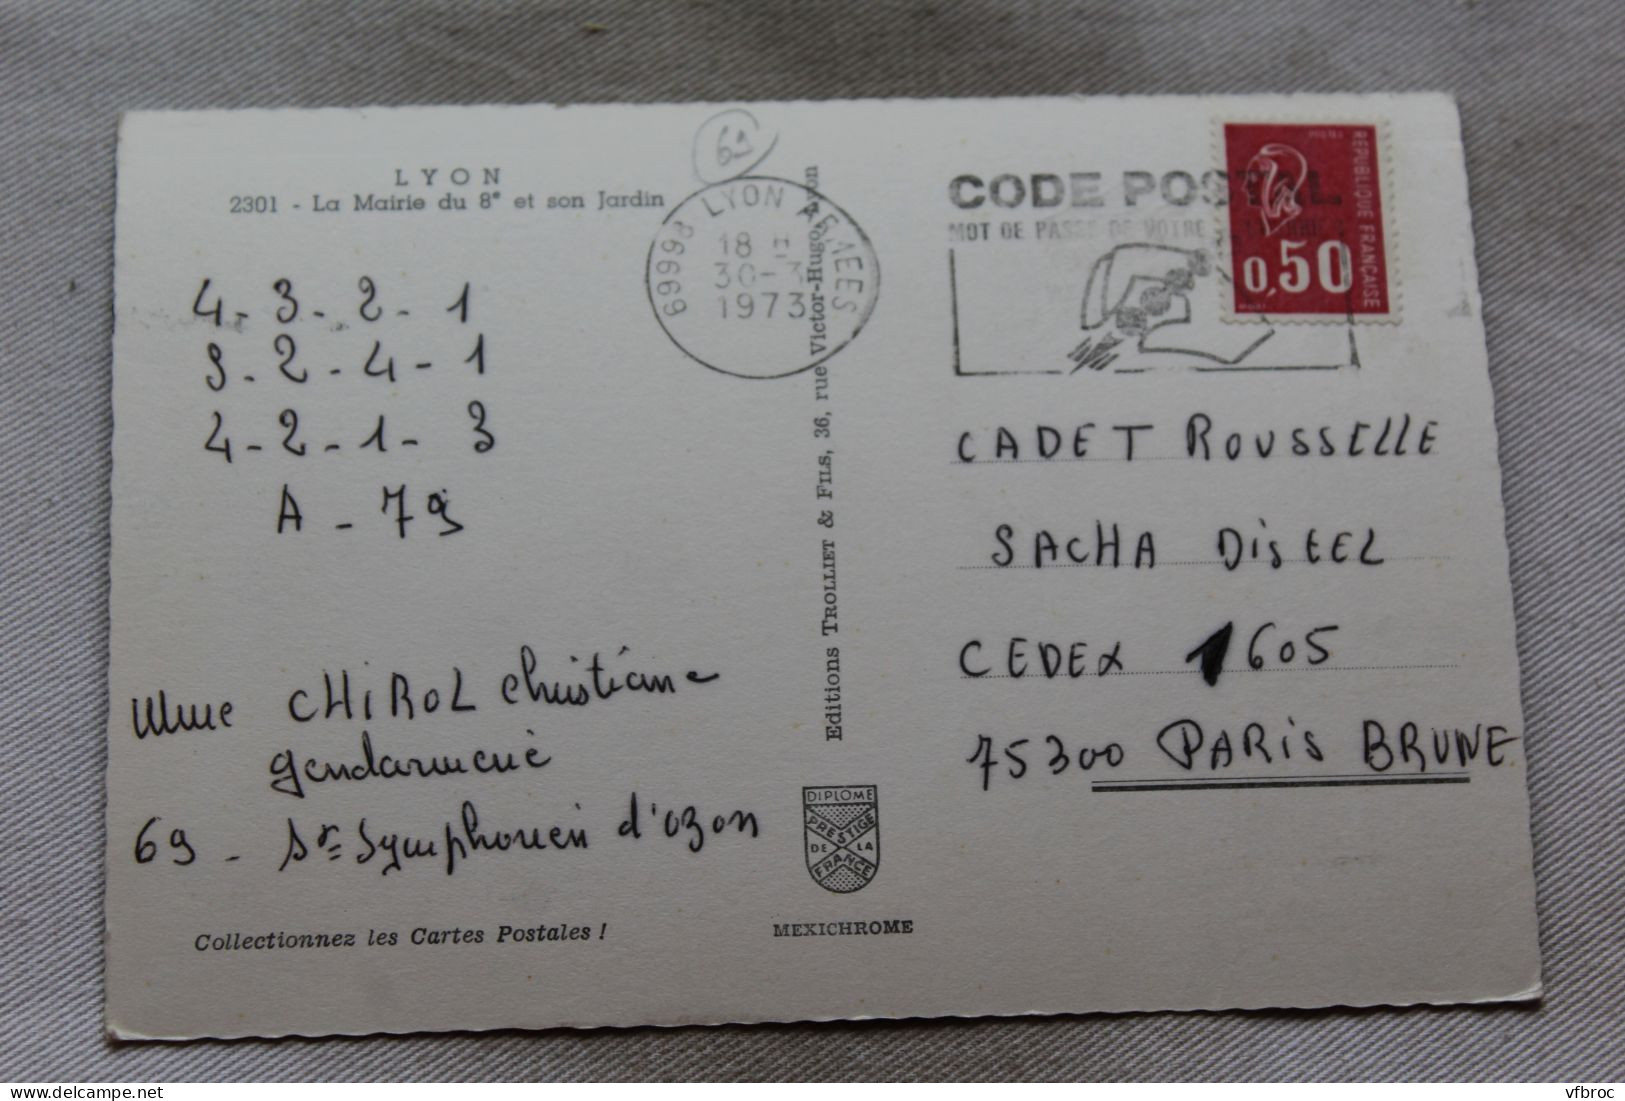 LYON
2301 - La Mairie du 8e et son Jardin
4 - 3 - 2 - 1
3 - 2 - 4 - 1
4 - 2 - 1 - 3
A - 79
Mme CHIROL Christiane
gendarmerie
69 - St Symphorien d'ozon
Collectionnez les Cartes Postales !
69
69998 LYON ARMEES
18 H
30-3
1973
Editions TROLLIET & FILS, 36, rue Victor-Hugo, Lyon
DIPLOME
PRESTIGE
DE LA
FRANCE
MEXICHROME
CODE POSTAL
MOT DE PASSE DE VOTRE
POSTES
REPUBLIQUE FRANÇAISE
0,50
CADET ROUSSELLE
SACHA DISTEL
CEDEX 1605
75300 PARIS BRUNE
delcampe.net
vfbroc